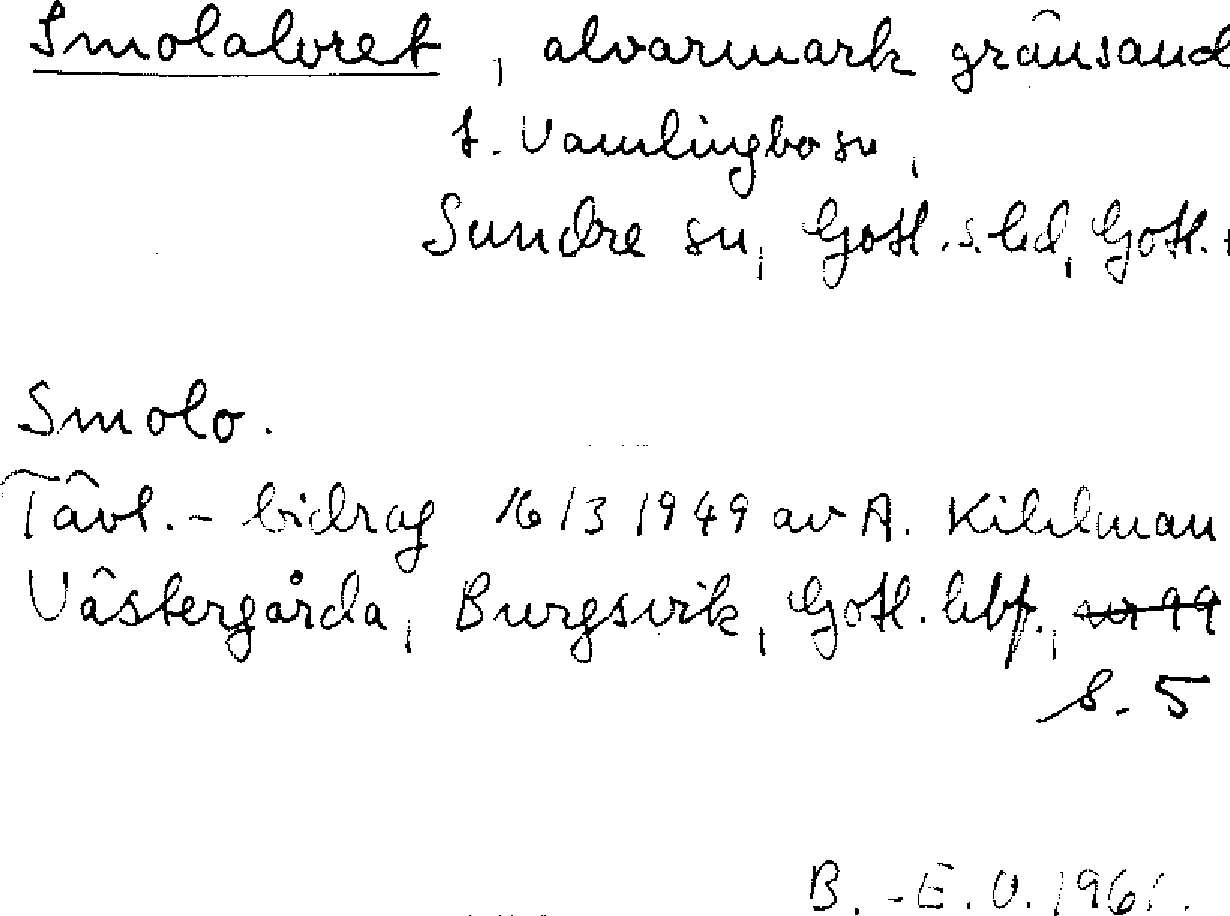 Smolalvret, alvarmark gränsand
t. Vamlingbo sn,
Sundre sn, Gotl. s. hd, Gotl.
Smolo.
Tävl.-bidrag 16/3 1949 av A. Kihlman
Västergårda, Burgsvik, Gotl. hbf.,
s. 5
B.-E. O. 1961.